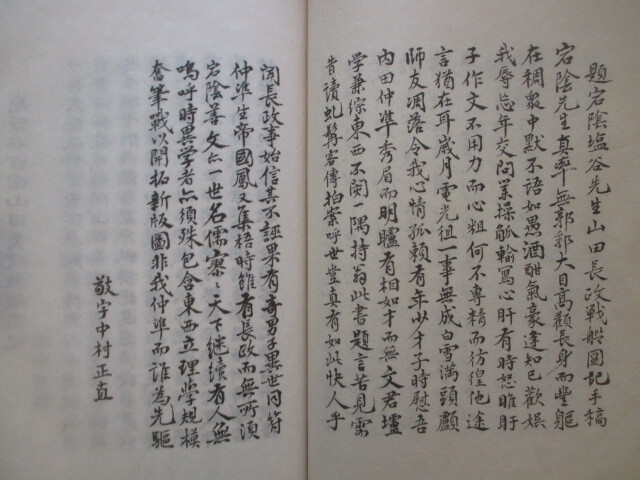 題宕陰塩谷先生山田長政戰艦圖記手稿
宕陰先生真率無郭郭大目高顴長身而豊軀
在稠衆中默不語如愚酒酣氣豪逢知已歡娯
我辱忘年交業操觚輸寫心肝有時恕睢盱
子作文不用力而心粗何不專精而彷徨他途
言猶在耳歳月電光徂一事無成白雪滿頭顱
師友凋落令我心情孤頼有年少才子時慰吾
内田仲準秀眉而明矑有相如才而無文君壚
学兼綜東西不一隅持翁此書題言苦見需
昔讀虬髯客傳拍案呼世豈真有如此快人乎
閲長政事始信其不誣果有奇男子異世同符
仲準生帝國鳳又集梧時雖有長政而無所須
宕陰善文亦一世名儒寥々天下継續有人無
嗚呼時異学者亦須殊包含東西立理学規模
奮筆戰以開拓新版圖非我仲準而誰為先驅
敬宇中村正直